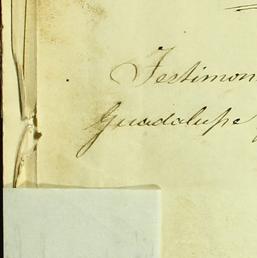 Testimon
Guadalupe